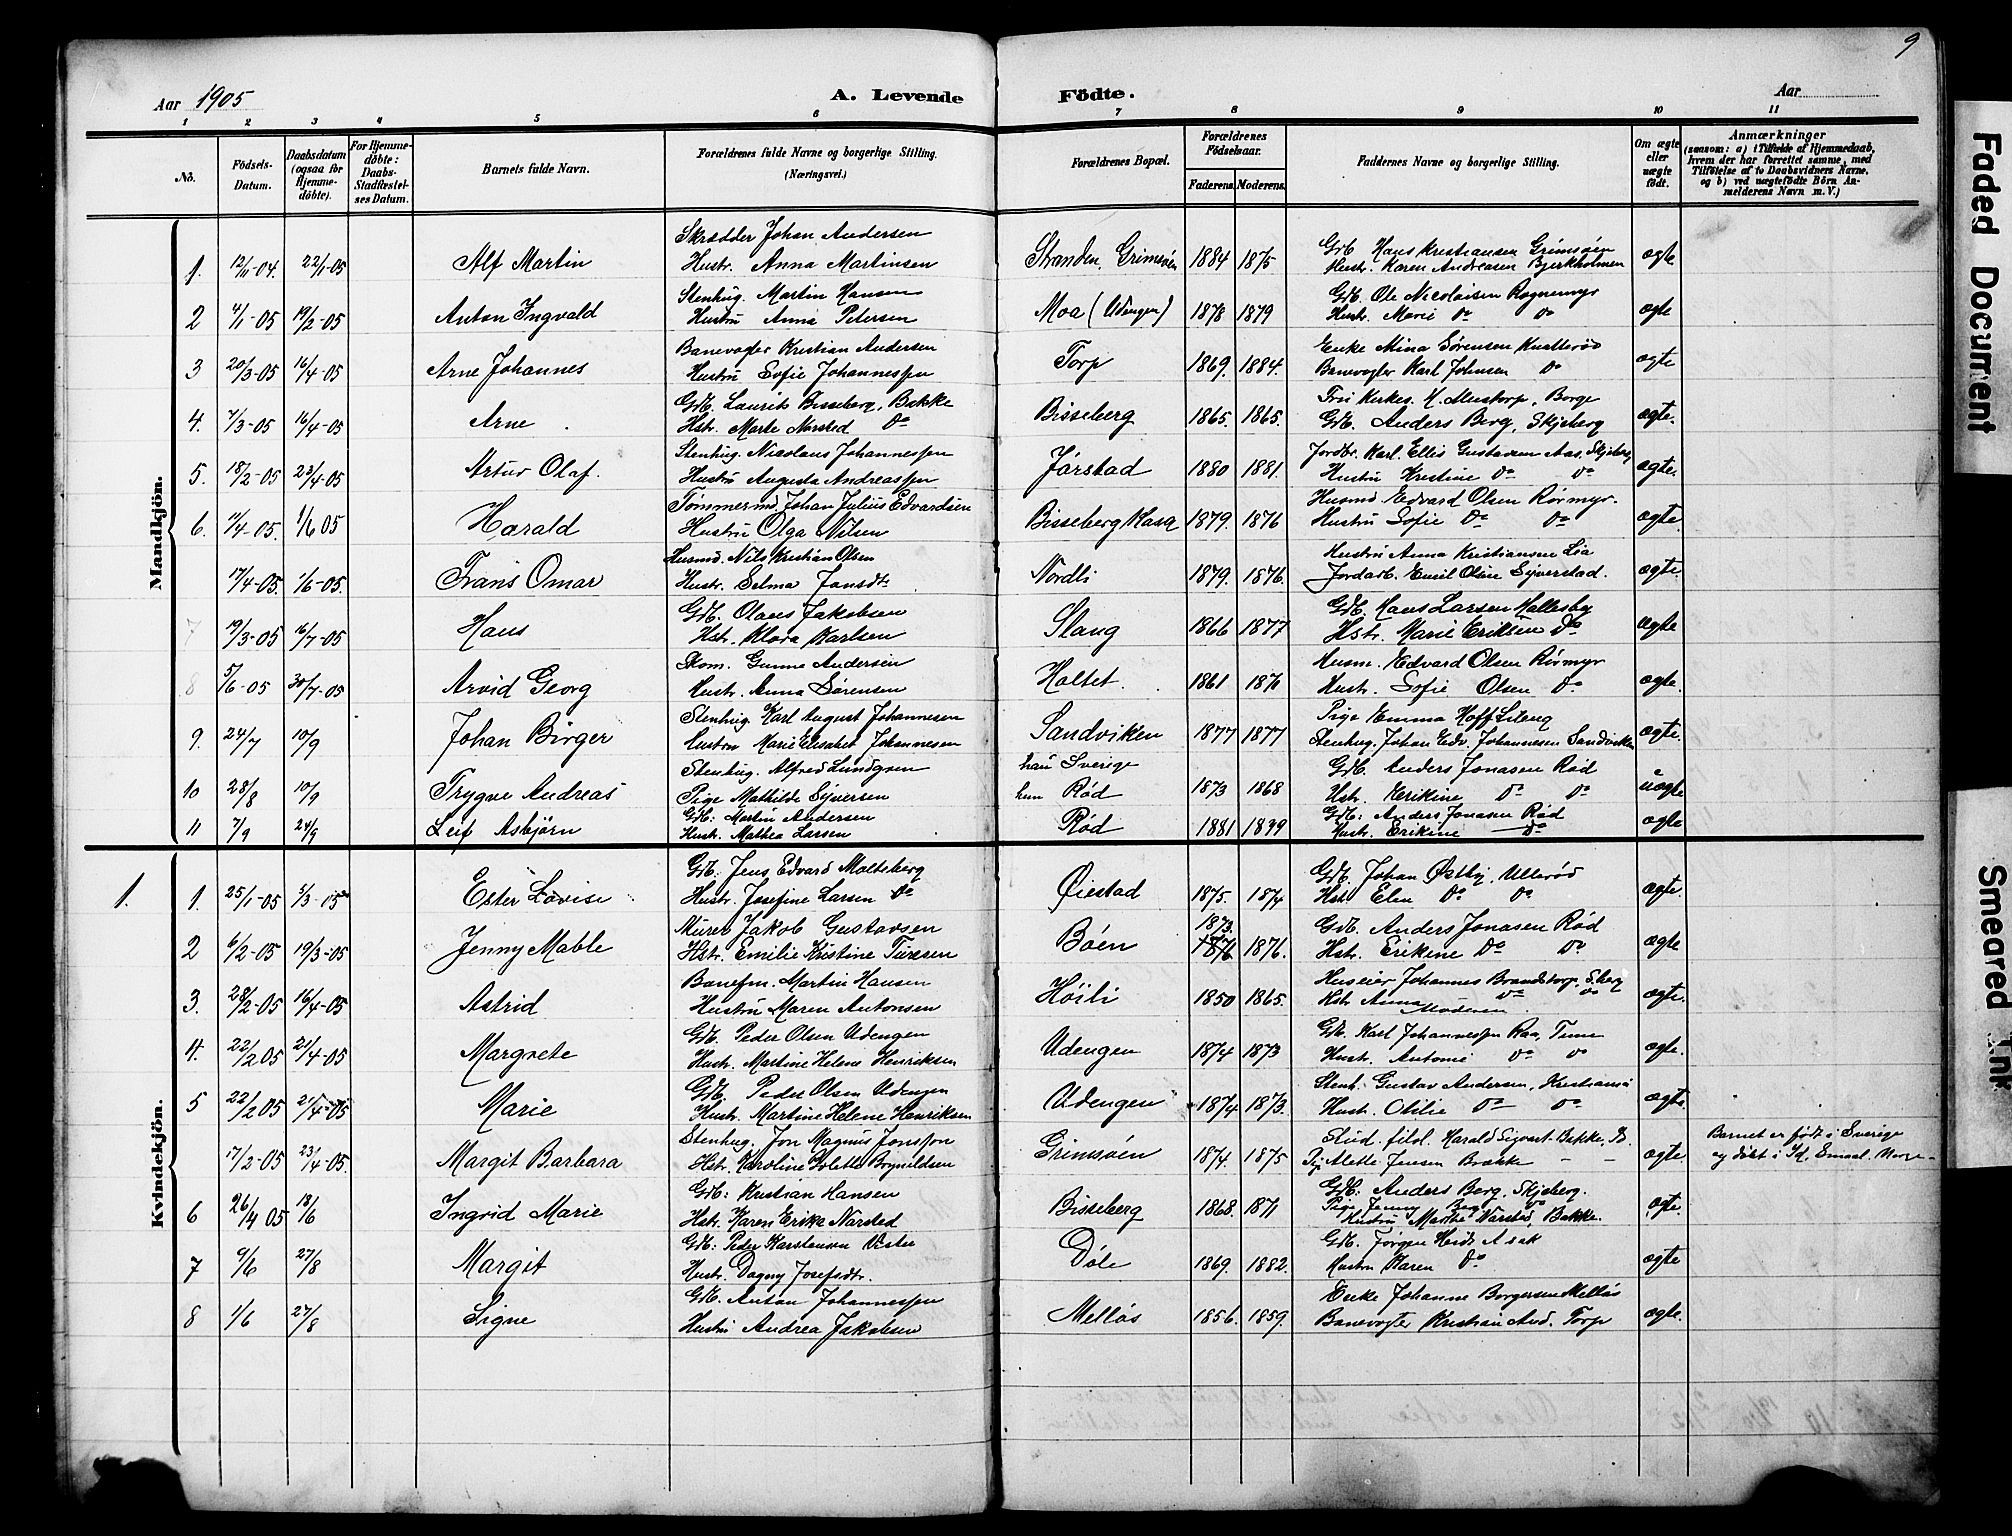 9
Aar 1905
A. Levende Fødte.
Aar
1 2 3 4 5 6 7 8 9 10 11
No.
Födsels-Datum.
Daabsdatum (ogsaa for Hjemme-döbte).
For Hjemme-döbte: Daabs-Stadfæstel-ses Datum.
Barnets fulde Navn.
Forældrenes fulde Navne og borgerlige Stilling. (Næringsvei.)
Forældrenes Bopæl.
Forældrenes Födselsaar.
Faderens. Moderens.
Faddernes Navne og borgerlige Stilling.
Om ægte eller uægte födt.
Anmærkninger
(saasom: a) i Tilfælde af Hjemmedaab, hvem der har forrettet samme, med Tilføielse af to Daabsvidners Navne, og b) ved uægtefödte Börn An-melderens Navn m. V.)
Mandkjön.
Skrædder Johan Andersen Gdb. Hans Kristiansen Grimsöen
1. 12/11-04. 22/1-05 Alf Martin Hustr. Anna Martinsen Stranden, Grimsöen 1884 1875 Hustr. Karen Andreasen Bjerkholmen ægte
Stenhug. Martin Hansen Gdb. Ole Nicolaisen Rognemyr
2 4/1-05 19/2-05 Anton Ingvald Hustru Anna Petersen Moa (Udengen) 1878 1879 Hustr. Marie Do Do ægte
Banevogter Kristian Andersen Enke Mina Sørensen Knatterød
3 20/3-05 16/4-05 Arne Johannes Hustru Sofie Johannessen Torp 1869. 1884. Banevogter Karl Johnsen Do ægte
Gdb. Laurits Bisseberg, Bakke Borge
4. 7/3-05 16/4-05 Arne Hst. Marte Narsted Do Bisseberg 1865. 1865. Gdb. Anders Berg, Skjeberg ægte.
Stenhug. Nicolaus Johannessen Jordbr. Karl Ellis Gustavsen Aas, Skjeberg
5. 18/2-05 23/4-05 Artur Olaf. Hustru Augusta Andreassen Jørstad 1880 1881. Hustru Kristine Do Do ægte.
Tömmermd. Johan Julius Edvardsen Husmd. Edvard Olsen Rörmyr.
6. 11/4-05. 1/6 05 Harald Hustru Olga Nilsen Bisseberg Hasa 1879. 1876 Hustru Sofie Do Do ægte.
Husmd. Nils Kristian Olsen Hustru Anna Kristiansen Lia
17/4-05. 1/6-05. Frans Omar Hustr. Selma Jansdt. Nordli 1879. 1876. Jordarb. Emil Olsen Syverstad. ægte.
Gdb. Olaus Jakobsen Gdb. Hans Larsen Hallesby
7 19/3-05 16/7-05 Hans Hst. Klara Karlsen Slang 1866 1877 Hst. Marie Eriksen Do ægte
Skom. Gunne Andersen Husm. Edvard Olsen Rörmyr
8 5/6-05 30/7-05 Arvid Georg Hustr. Anna Sörensen Holtet. 1861 1870 Hust. Sofie Olsen Do. ægte.
Stenhug. Karl August Johannesen Pige Emma Hoff
9. 24/7 10/9 Johan Birger Hustru Marie Elisabet Johannesen Sandviken 1877 1877 Stenhug. Johan Edv. Johannesen Sandviken ægte.
Stenhug. Alfred Lundgren han Sverige Gdb. Anders Jonasen Rød
10 28/8 10/9 Trygve Andreas Pige Mathilde Syversen hun Rød 1873 1868 Hst. Erikine Do Do uægte
Gdb: Martin Andersen Gdb: Anders Jonasen Rød
11 7/9 24/9 Leif Asbjörn Hust. Mathea Larsen Rød 1881 1879 Hust. Erikine Do ægte
Kvindekjön.
Gdb: Jens Edvard Molteberg Gdb. Johan Østby, Ullerød
1. 1. 25/1-05 5/3-05 Ester Lovise Hustr. Josefine Larsen Do Øiestad 1875. 1874 Hst. Elen Do Do ægte.
Murer Jakob Gustavsen 1873. Gdb. Anders Jonasen Rød
2 6/2-05 19/3-05 Jenny Mable Hstr. Emilie Kristine Turesen Böen 1876 1876. Hst. Erikine Do Do ægte
Banefm. Martin Hansen Huseier Johannes Brandstorp, Sberg
3. 28/2-05 16/4-05 Astrid Hustru Maren Antonsen Höili 1850 1865. Hst. Anna Do Do ægte.
Moderen
Gdb. Peder Olsen Udengen Gdb. Karl Johannessen Raa, Tune
4. 22/2 05 21/4-05 Margrete Hust. Martine Helene Henriksen Udengen 1874 1873 Hust. Antonie Do Do ægte.
Gdb. Peder Olsen Udengen Stenh. Gustav Andersen, Kristiania
5 22/2 05 21/4-05 Marie Hust. Martine Helene Henriksen Udengen 1874 1873. Hust. Otilie Do Do ægte
Stenhug. Jon Magnus Jonsson Stud. filol. Harald Sigvart Bakke, Barnet er født i Sverige
17/2-05 23/4-05. Margit Barbara Hst. Karoline Bolette Brynildsen Grimsöen 1874. 1875 Pi. Alette Jensen Brække - - ægte. og döbt i
Gdb: Kristian Hansen Gdb: Anders Berg, Skjeberg.
6 26/4 05 18/6 Ingrid Marie Hst. Karen Erika Narsted Bisseberg 1868. 1871 Pige Jenny Berg Do ægte.
Hustru Marthe Narsted, Bakke.
Gdb: Peder Karstensen Vister Gdb. Jörgen Heide Asak
7 9/6 27/8 Margit Hust. Dagny Josefsdtr. Döle 1869. 1882. Hustru Karen Do ægte
Gdb. Anton Johannessen Enke Johanne Borgersen Mellös
8 1/6 27/8 Signe Hustru Andrea Jakobsen Mellös 1856. 1859. Banevogter Kristian And. Torp ægte.
Faded Document
Smeared Ink